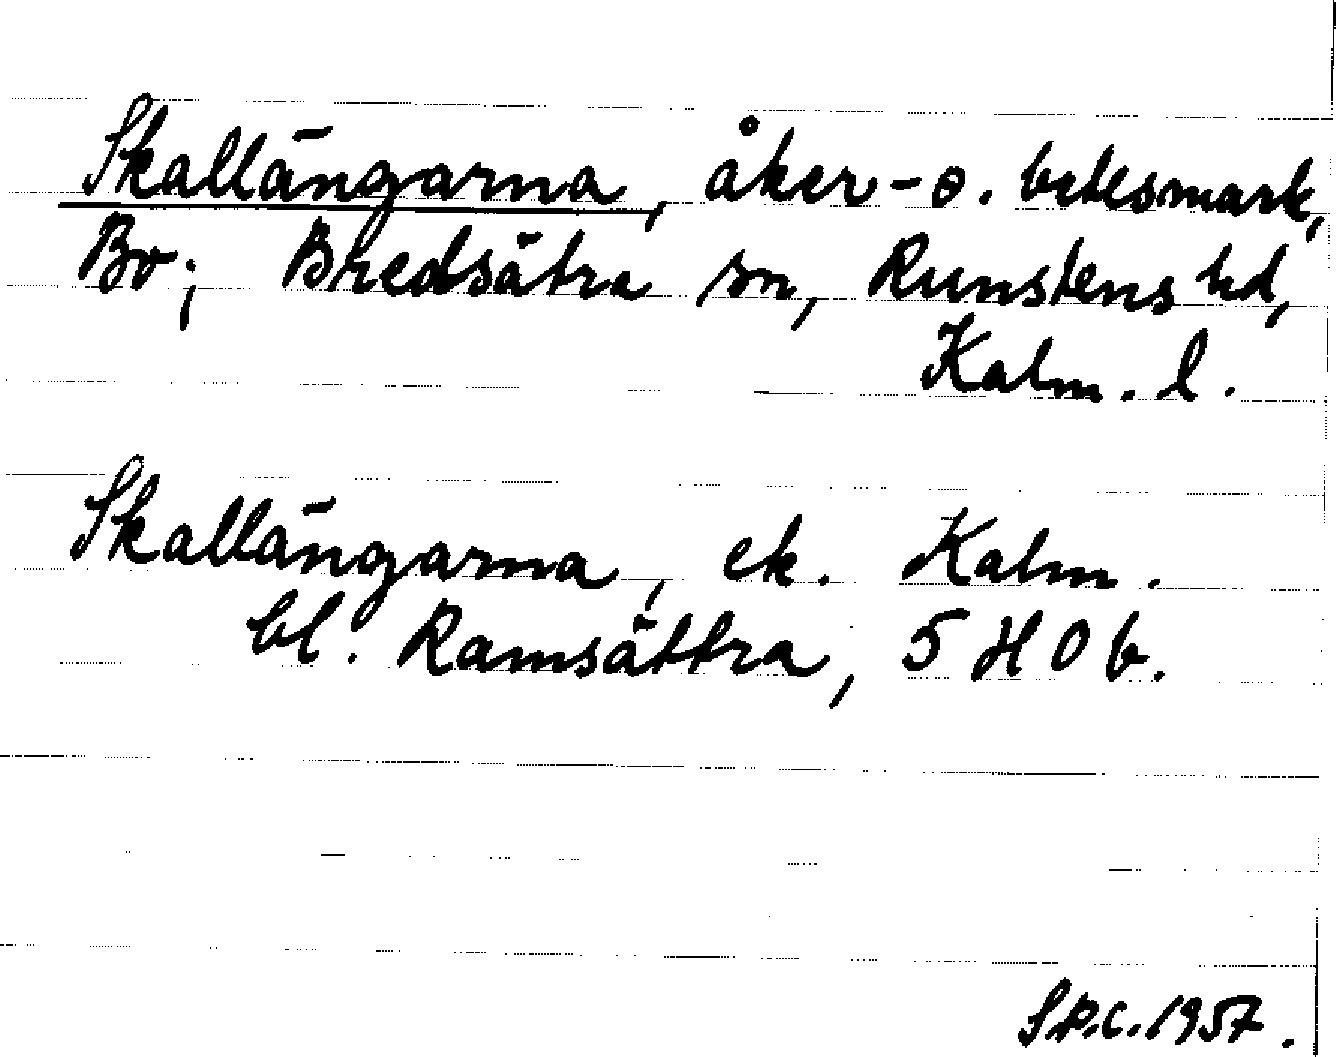 Skallängarna, åker- o. betesmark,
Bo; Bredsätra sn, Runstens hd,
Kalm. l.
Skallängarna, ek. Kalm.
bl. Ramsättra, 5 H 0 b.
S.P.C. 1957.